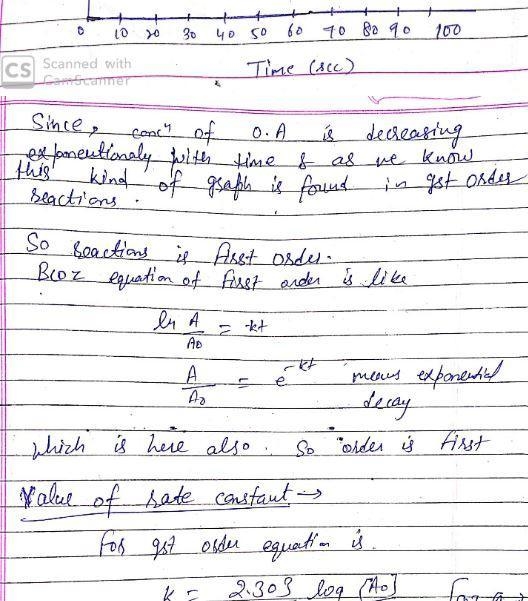 0 10 20 30 40 50 60 70 80 90 100
CS Scanned with
CamScanner
Time (sec)
Since, concn of O.A is decreasing
exponentionaly with time & as we know
this kind of graph is found in 1st order
reactions.
So reactions is first order.
Bcoz equation of first order is like
ln A/A0 = -kt
A/A0 = e^-kt means exponential
decay
which is here also. So order is first
Value of rate constant →
for 1st order equation is.
K = 2.303 log [A0]